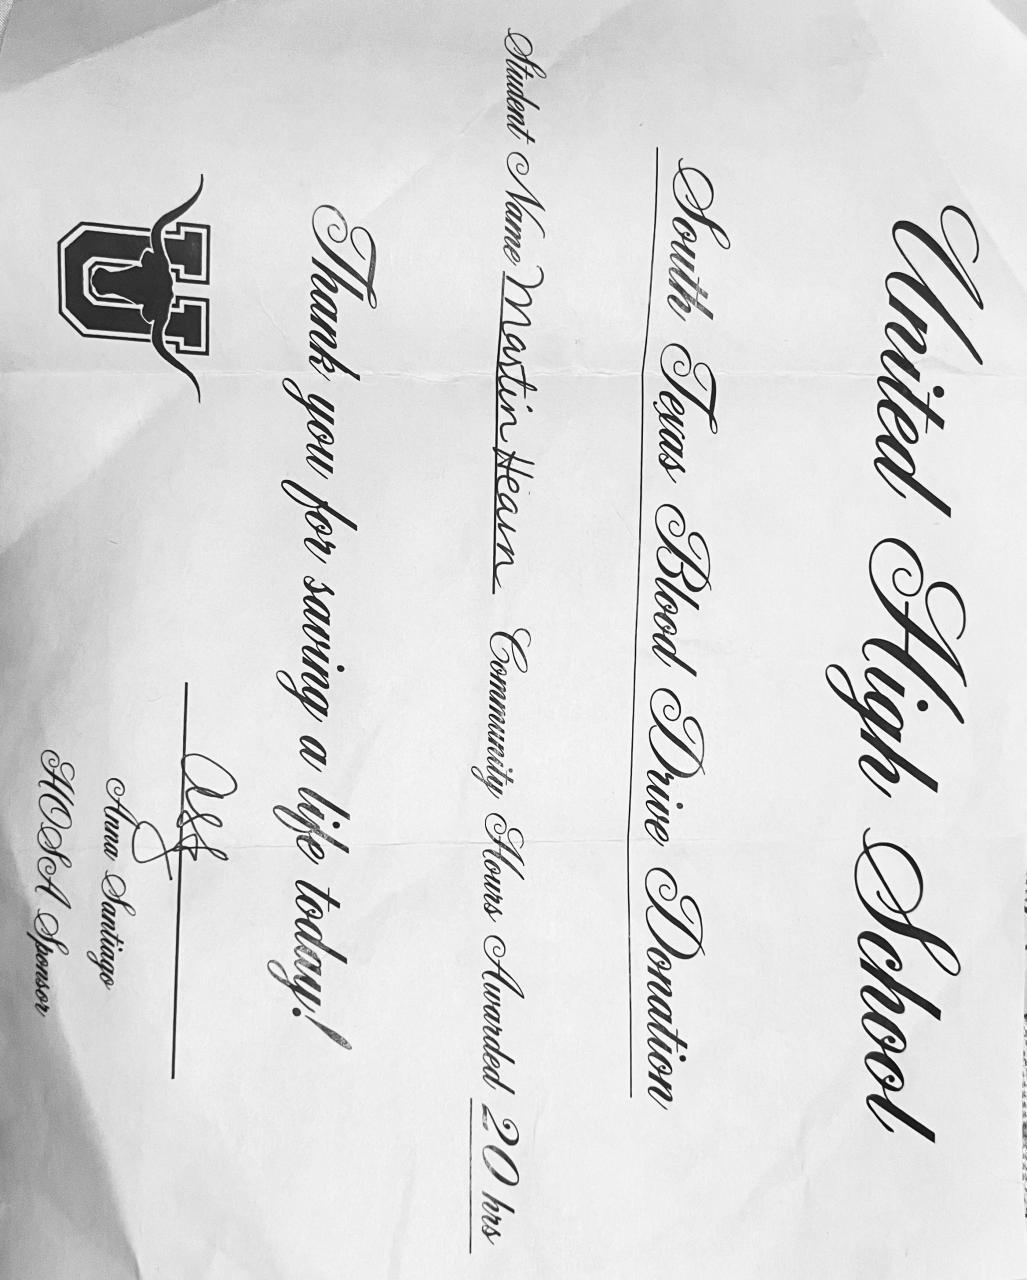 United High School
South Texas Blood Drive Donation
Student Name Martin Hearn Community Hours Awarded 20 hrs
Thank you for saving a life today!
U
Anna Santiago
HOSA Sponsor